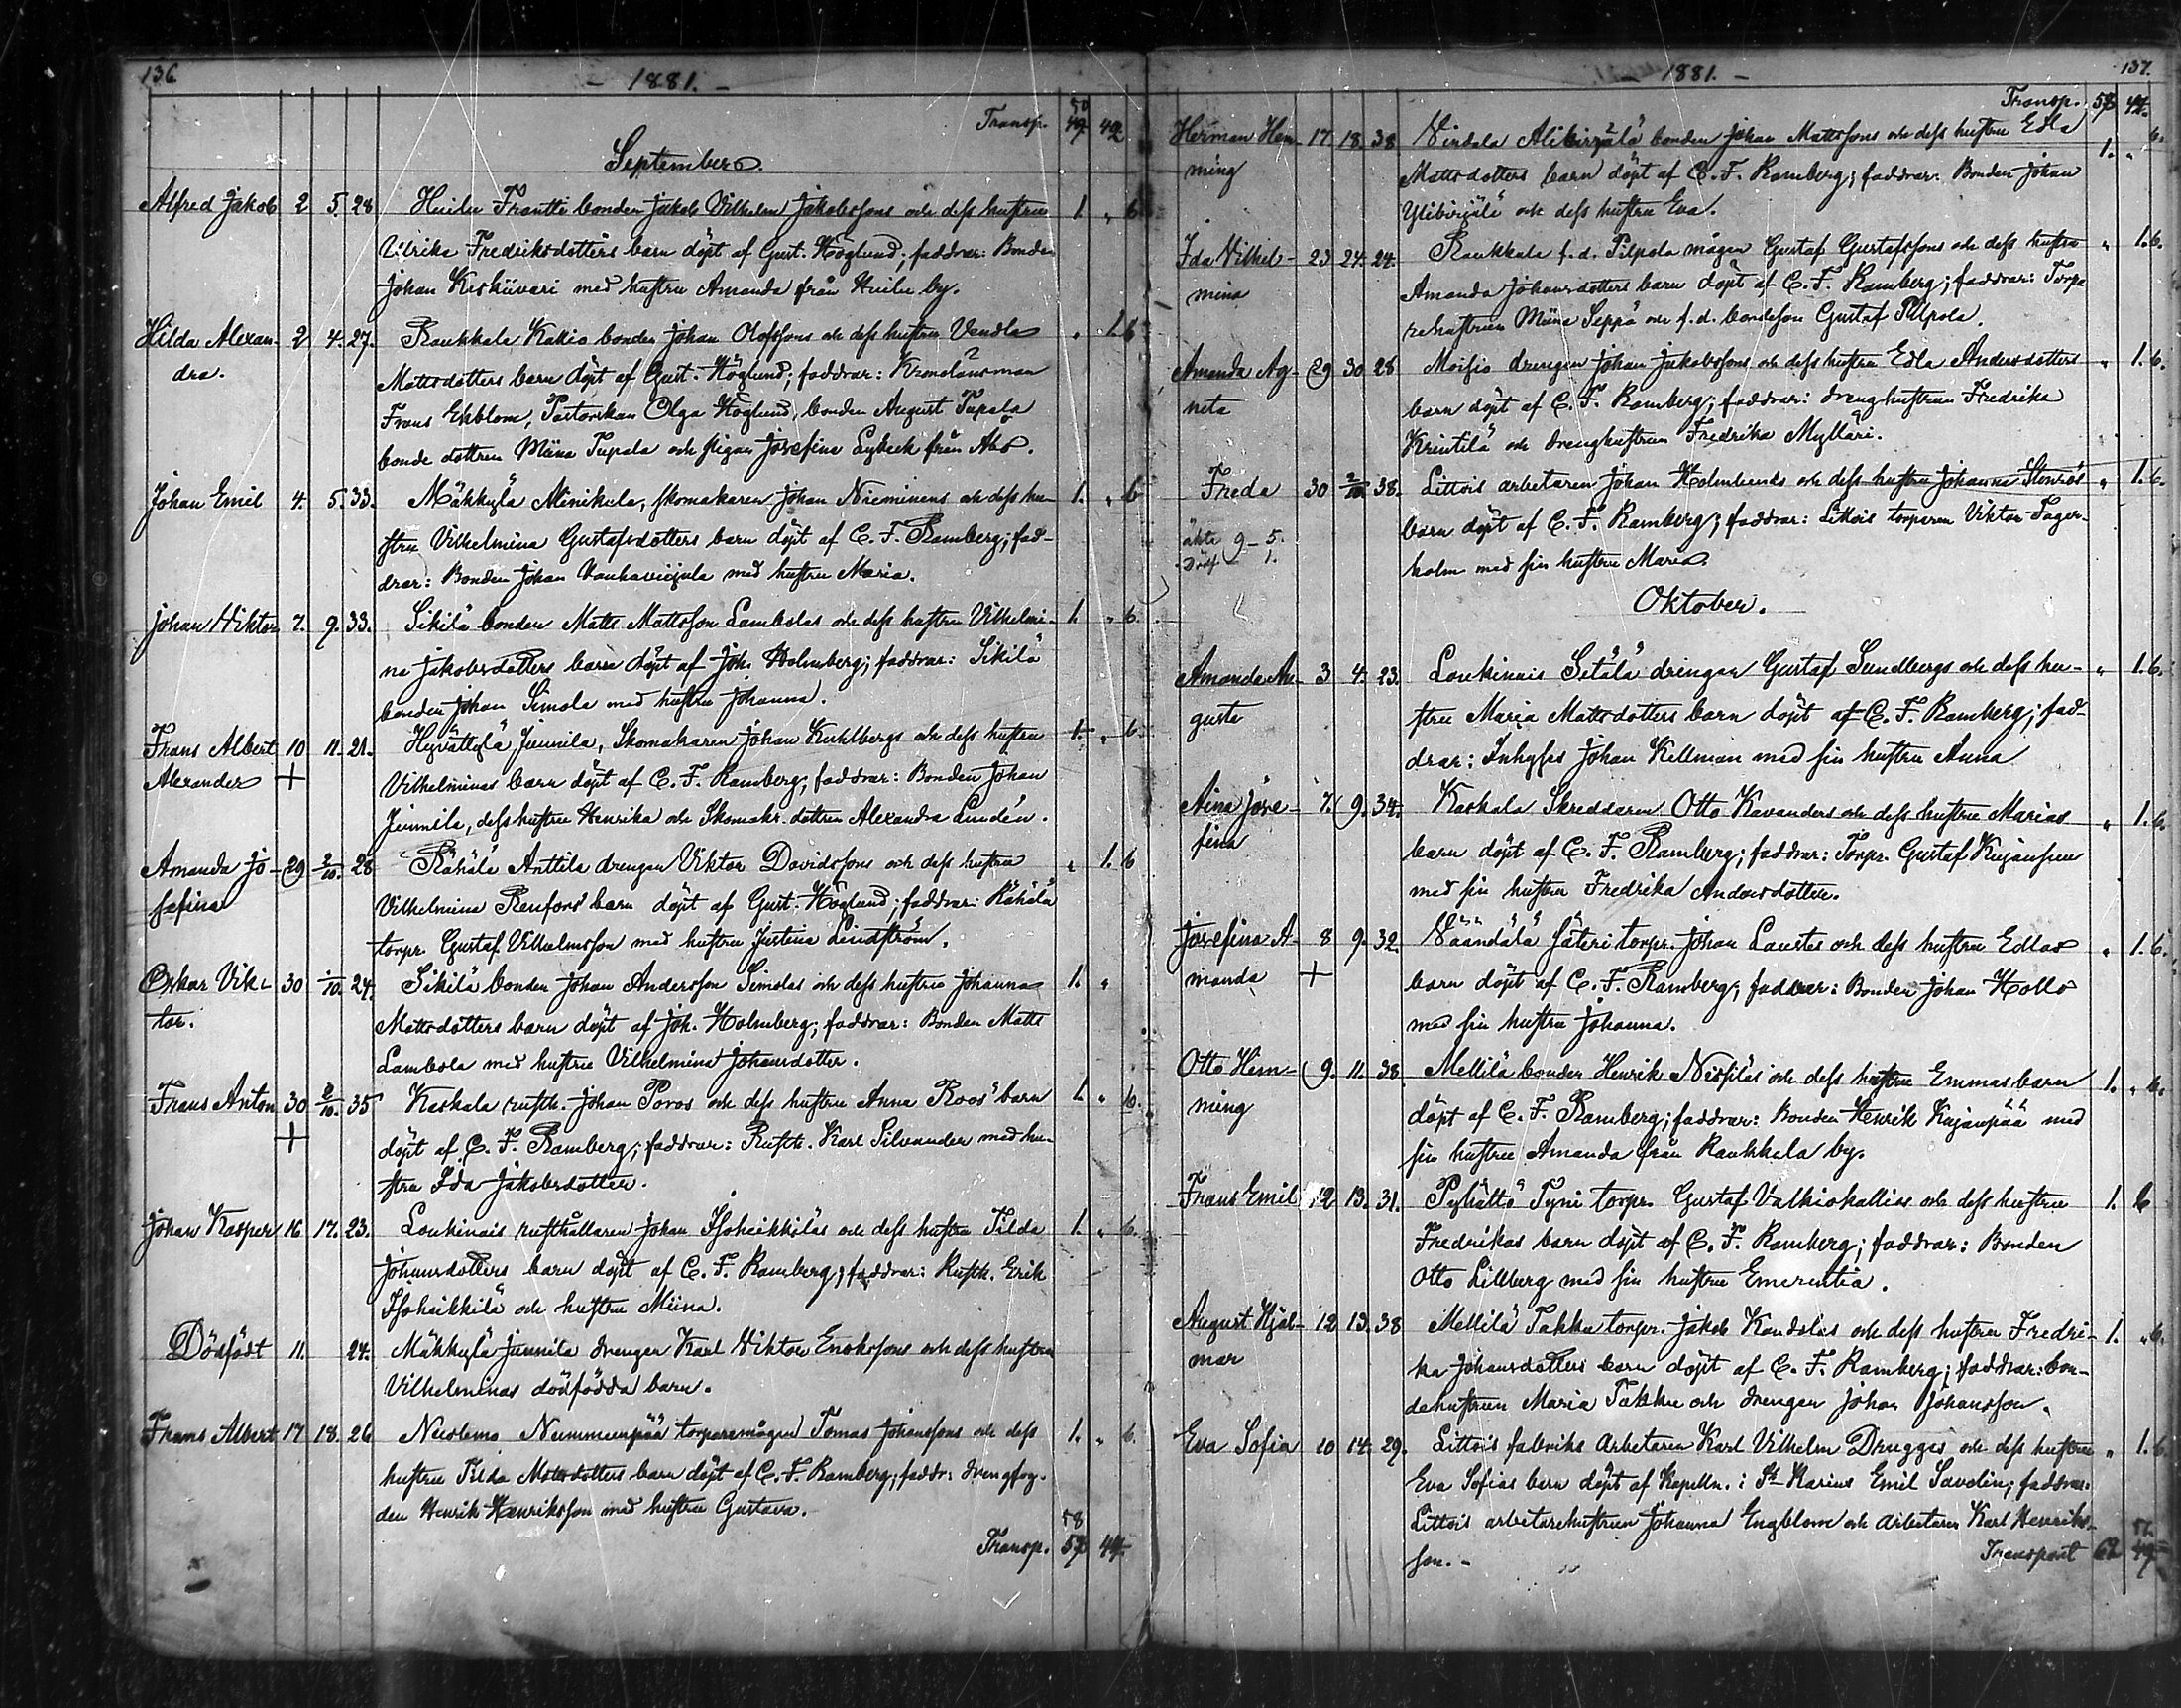 136
- 1881. -
50
Transp. 49 42
September.
Alfred Jakob 2 5. 28 Huilu Frantti bonden Jakob Vilhelm Jakobssons och dess hustru 1 „ 6
Ulrika Fredriksdotters barn döpt af Gust. Höglund; faddrar: Bonden
Johan Keskiivari med hustru Amanda från Huilu by.
Hilda Alexan- 2 4. 27. Raukkala Kakio bonden Johan Olofssons och dess hustru Vendla „ 1. 6
dra. Mattsdotters barn döpt af Gust. Höglund; faddrar: Kronolänsman
Frans Ekblom, Pastorskan Olga Höglund, bonden August Tupala
bonde dottren Miina Tupala och pigan Josefina Lybeck från Åbo.
Johan Emil 4. 5. 33. Mäkkylä Minikula, skomakaren Johan Nieminens och dess hu- 1. „ 6
stru Vilhelmina Gustafsdotters barn döpt af C. F. Ramberg; fad-
drar: Bonden Johan Vanhavirjula med hustru Maria.
Johan Viktor 7. 9. 33. Sikilä bonden Matts Mattsson Lambolas och dess hustru Vilhelmi- 1. „ 6.
na Jakobsdotters barn döpt af Joh. Holmberg; faddrar: Sikilä
bonden Johan Simola med hustru Johanna.
Frans Albert 10 11. 21. Hyvättylä Junnila, Skomakaren Johan Kuhlbergs och dess hustru 1. „ 6.
Alexander + Vilhelminas barn döpt af C. F. Ramberg; faddrar: Bonden Johan
Junnila, dess hustru Henrika och Skomakr. dottren Alexandra Lindén.
Amanda Jo- 29 2/10. 28 Rähälä Anttila drengen Viktor Davidssons och dess hustru „ 1. 6
sefina Vilhelmina Renfors' barn döpt af Gust. Höglund; faddrar: Rähälä
torpr Gustaf Vilhelmsson med hustru Justina Lindström.
Oskar Vik- 30 1/10. 24. Sikilä bonden Johan Andersson Simolas och dess hustru Johanna 1. „
tor. Mattsdotters barn döpt af Joh. Holmberg; faddrar: Bonden Matts
Lambola med hustru Vilhelmina Johansdotter.
Frans Anton 30 2/10. 35 Kaskala rusth. Johan Poros och dess hustru Anna Roos' barn 1. „ 6.
+ döpt af C. F. Ramberg; faddrar: Rusth. Karl Silvander med hu-
stru Ida Jakobsdotter.
Johan Kasper 16 17. 23. Loukinais rusthållaren Johan Isoheikkiläs och dess hustru Tilda 1. „ 6.
Johansdotters barn döpt af C. F. Ramberg; faddrar: Rusth. Erik
Isoheikkilä och hustru Miina.
Dödfödt 11. 24. Mäkkylä Junnila drengen Karl Viktor Enokssons och dess hustru
Vilhelminas dödfödda barn.
Frans Albert 17 18. 26 Nuolemo Nummenpää torparemågen Tomas Johanssons och dess 1. „ 6.
hustru Tilda Mattsdotters barn döpt af C. F. Ramberg; faddr: drengfog-
den Henrik Henriksson med hustru Gustava.
58
Transp. 57 44.
137.
- 1881. -
Transp. 58 44.
Herman Hen- 17 18. 38. Virdala Alikirjala bonden Johan Mattssons och dess hustru Edla 1. „ 6.
ning Mattsdotters barn döpt af C. F. Ramberg; faddrar: Bonden Johan
och dess hustru Eva.
Ida Vilhel- 23 24. 24. Raukkala f. d. Pilpola mågen Gustaf Gustafssons och dess hustru „ 1. 6.
mina Amanda Johansdotters barn döpt af C. F. Ramberg; faddrar: Torpa
rehustrun Miina Seppä och f. d. bondeson Gustaf Pilpola.
Amanda Ag- 29 30 28 Moisio drengen Johan Jakobssons och dess hustru Edla Andersdotters „ 1. 6.
neta barn döpt af C. F. Ramberg; faddrar: drenghustrun Fredrika
Krentilä och drenghustrun Fredrika Mylläri.
Freda 30 2/10. 38. Littois arbetaren Johan Holmlunds och dess hustru Johanna Stenros „ 1. 6.
barn döpt af C. F. Ramberg; faddrar: Littois torparen Viktor Fager-
äkta 9 - 5.
Dödf - 1.
holm med sin hustru Maria.
Oktober.
Amanda Au- 3 4. 23. Loukinais Sitälä drengen Gustaf Sundbergs och dess hu- „ 1. 6.
gusta stru Maria Mattsdotters barn döpt af C. F. Ramberg; fad-
drar: Inhyses Johan Kellman med sin hustru Anna
Aina Jose- 7. 9. 34. Kaskala Skreddaren Otto Kavanders och dess hustru Marias „ 1. 6.
fina barn döpt af C. F. Ramberg; faddrar: Torpr. Gustaf Kujanpää
med sin hustru Fredrika Andersdotter.
Josefina A- 8 9. 32 Väändälä Säteri torpr. Johan Laustes och dess hustru Edlas „ 1. 6.
manda + barn döpt af C. F. Ramberg; faddrar: Bonden Johan Hollo
med sin hustru Johanna.
Otto Hen- 9. 11. 38. Mellilä bonden Henrik Nissiläs och dess hustru Emmas barn 1. „ 6.
ning döpt af C. F. Ramberg; faddrar: Bonden Henrik Kujanpää med
sin hustru Amanda från Raukkala by.
Frans Emil 12 13. 31. Pyhättö Tyni torpr. Gustaf Valkiakallias och dess hustru 1. 6
Fredrikas barn döpt af C. F. Ramberg; faddrar: Bonden
Otto Lillberg med sin hustru Emerentia.
August Hjal- 12 13. 38 Mellilä Takku torpr. Jakob Kandolas och dess hustru Fredri- 1. „ 6.
mar ka Johansdotters barn döpt af C. F. Ramberg; faddrar: bon-
dehustrun Maria Takku och drengen Johan Johansson.
Eva Sofia 10 14. 29. Littois fabriks arbetaren Karl Vilhelm Drugges och dess hustru „ 1. 6.
Eva Sofias barn döpt af Kapelln. i St Karins Emil Savolin; faddrar:
Littois arbetarehustrun Johanna Engblom och arbetaren Karl Henriks-
son. - Transport 62